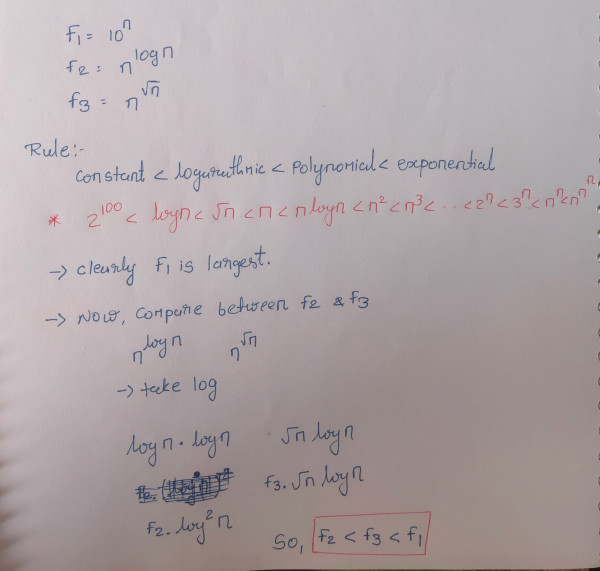 F₁ = 10ⁿ
f₂ : n^logn
f₃ = n^√n
Rule:-
Constant < logarathnic < Polynomial < exponential
* 2^100 < logn < √n < n < nlogn < n² < n³ < .. < 2ⁿ < 3ⁿ < nⁿ < n^n^n
→ clearly F₁ is largest.
→ Now, Compare between f₂ & f₃
n^logn n^√n
→ take log
logn · logn √n logn
f₃. √n logn
f₂. log²n
So, f₂ < f₃ < f₁